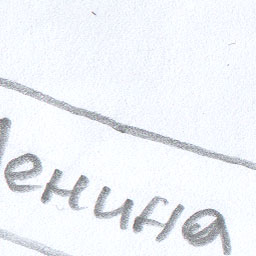 Ленина